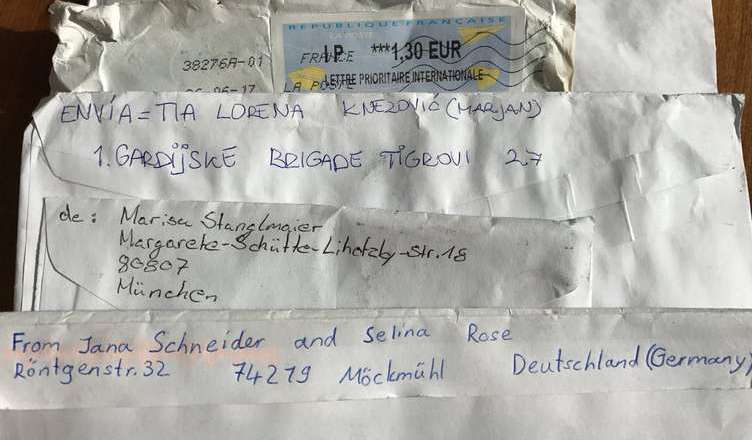 REPUBLIQUE FRANCAISE
LA POSTE
38276A-01 FRANCE IP ***1,30 EUR
LETTRE PRIORITAIRE INTERNATIONALE
LA POSTE
ENVÍA = TIA LORENA KNEZOVIĆ (MARJAN)
1. GARDIJSKE BRIGADE TIGROVI 27
de: Marisa Stanglmaier
Margarete-Schütte-Lihotzky-Str. 18
80807
München
From Jana Schneider and Selina Rose
Röntgenstr. 32 74219 Möckmühl Deutschland (Germany)